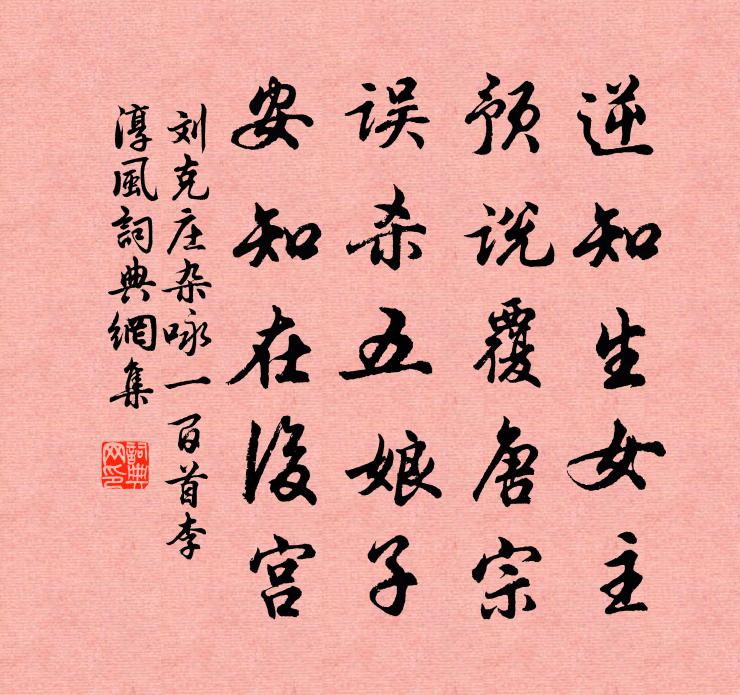 逆知生女主
预说覆唐宗
误杀五娘子
安知在後宫
刘克庄杂咏一百首李
淳風詞典網集
詞典网印